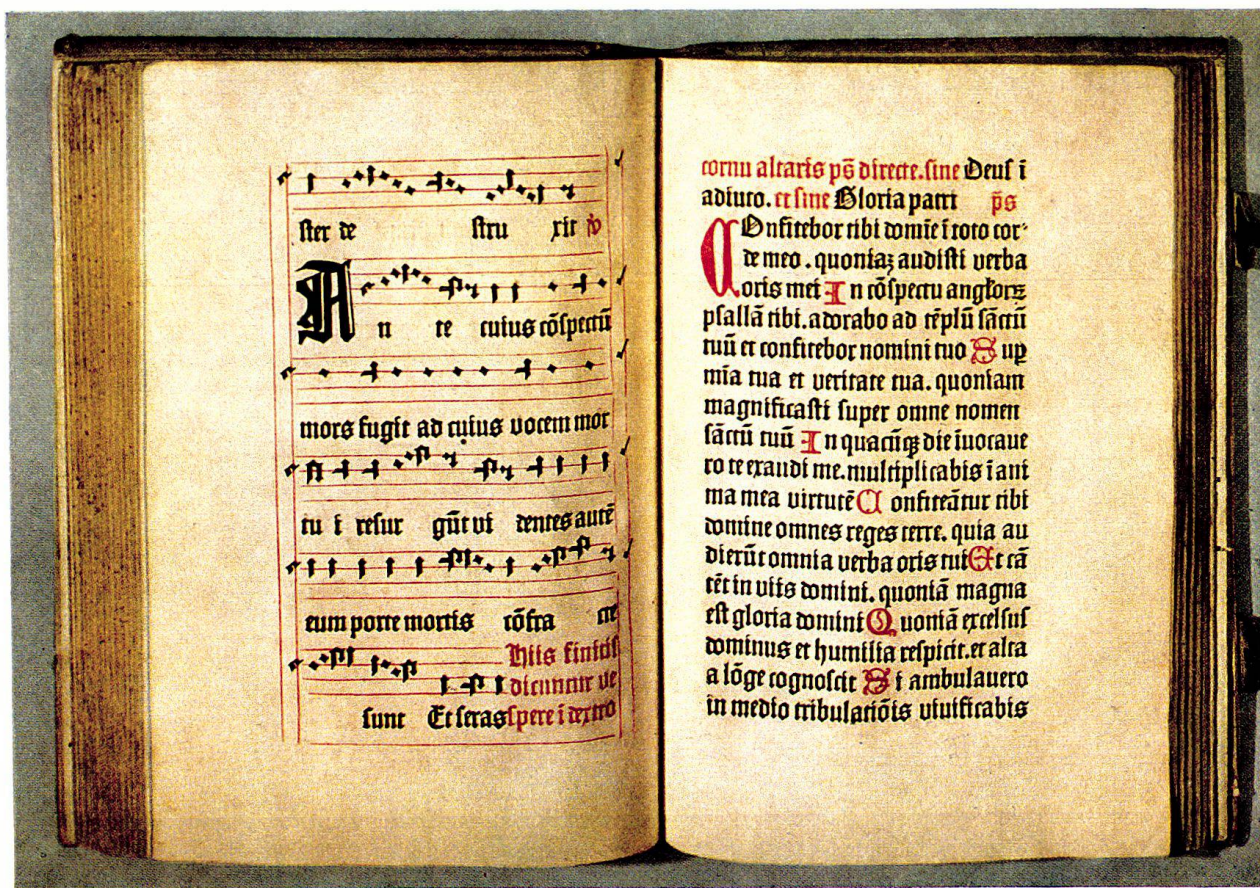 ster de stru xit ꝟ
An te cuius cōspectū
mors fugit ad cuius vocem mor
tu i resur gūt vi dentes autē
eum porte mortis cōfra cte
Hiis finitis
dicuntur ve
sunt Et seras spere ī dextro
cornu altaris pš directe. sine Deus ī
adiuto. et sine Gloria patri pš
COnfitebor tibi domīe ī toto cor-
de meo. quoniaꝫ audisti verba
oris mei In cōspectu angloꝝ
psallā tibi. adorabo ad tēplū sāctū
tuū et confitebor nomini tuo Suꝑ
mīa tua et veritate tua. quoniam
magnificasti super omne nomen
sāctū tuū In quacūqꝫ die īuocaue
ro te exaudi me. multiplicabis ī ani
ma mea virtutē Confiteātur tibi
domine omnes reges terre. quia au
dierūt omnia verba oris tui Et cā
tēt in viis domini. quoniā magna
est gloria domini Quoniā excelsus
dominus et humilia respicit. et alta
a lōge cognoscit Si ambulauero
in medio tribulatiōis viuificabis